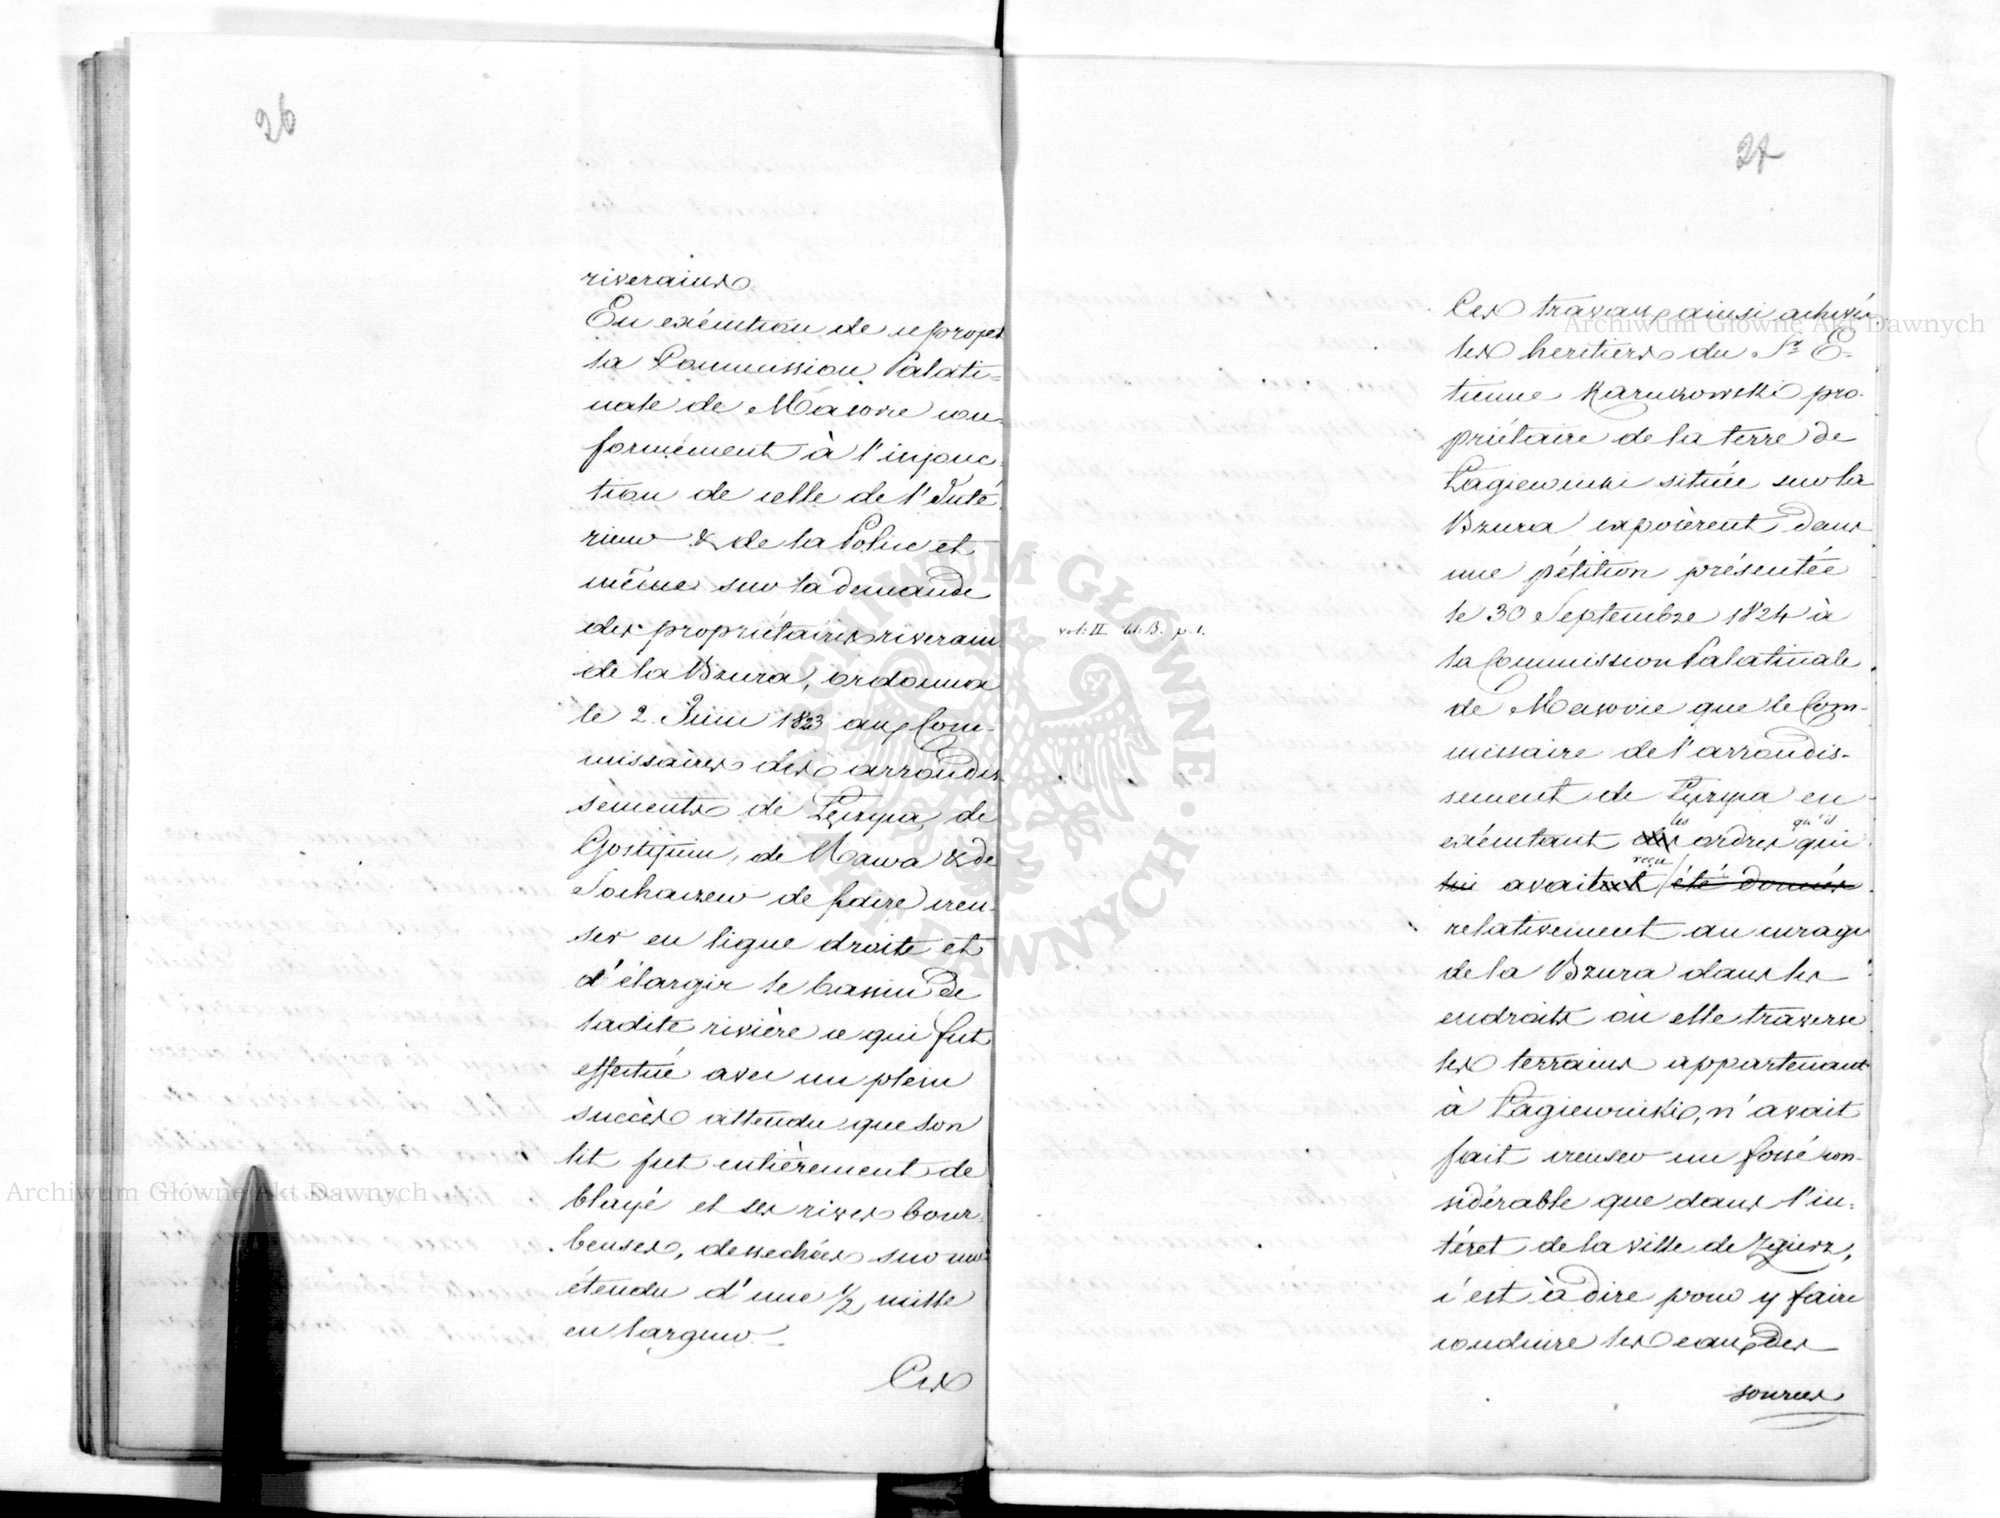 26
riverains
En exécution de ce projet
la Commission Palati=
nale de Masovie con=
formément à l'injonc=
tion de celle de l'Inté=
rieur & de la Police et
même sur la demande
des propriétaires riverains
de la Bzura, ordonna
le 2 Juin 1823 aux Com-
missaires des arrondis
sements de Lęczyca, de
Gostynin, de Rawa & de
Sochaczew de faire creu-
ser en ligne droite et
d'élargir le bassin de
ladite rivière ce qui fut
effectué avec un plein
succès attendu que son
lit fut entièrement de
blayé et ses rives bour=
beuses, dessechées sur une
étendu d'une 1/2 mille
en largeur. -
Ces
27
Ces travaux ainsi achevés
les heritiers du Sr E-
tienne Karnkowski pro-
priétaire de la terre de
Łagiewniki située sur la
Bzura exposèrent dans
une pétition présentée
le 30 Septembre 1824 à
vol: II lit. B. p. 1.
la Commission Palatinale
de Masovie que le Com-
missaire de l'arrondis-
sement de Lęczyca en
exécutant des les ordres qui qu'il
lui avaitent reçu été donnés
relativement au curage
de la Bzura dans les
endroits où elle traverse
les terrains appartenant
à Łagiewniki, n'avait
fait creuser un fossé con-
sidérable que dans l'in=
téret de la ville de Zgierz,
c'est à dire pour y faire
conduire les eaux des
sources
Archiwum Główne Akt Dawnych
Archiwum Główne Akt Dawnych
ARCHIWUM GŁÓWNE AKT DAWNYCH